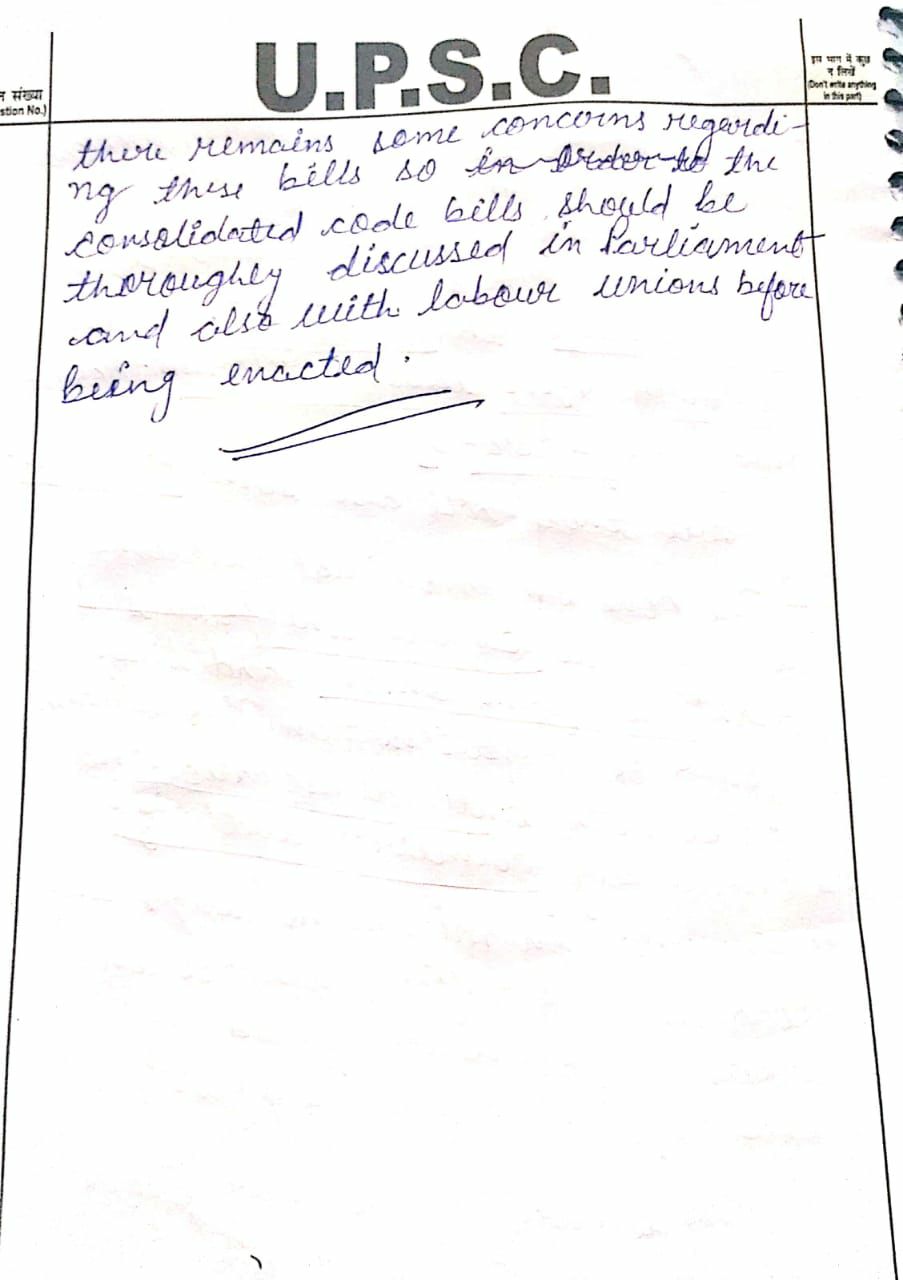 U.P.S.C.
न संख्या
stion No.)
इस भाग में कुछ
न लिखें
(Don't write anything
in this part)
there remains some concerns regardi-
ng these bills so in order to the
consolidated code bills should be
thoroughly discussed in Parliament
and also with labour unions before
being enacted.